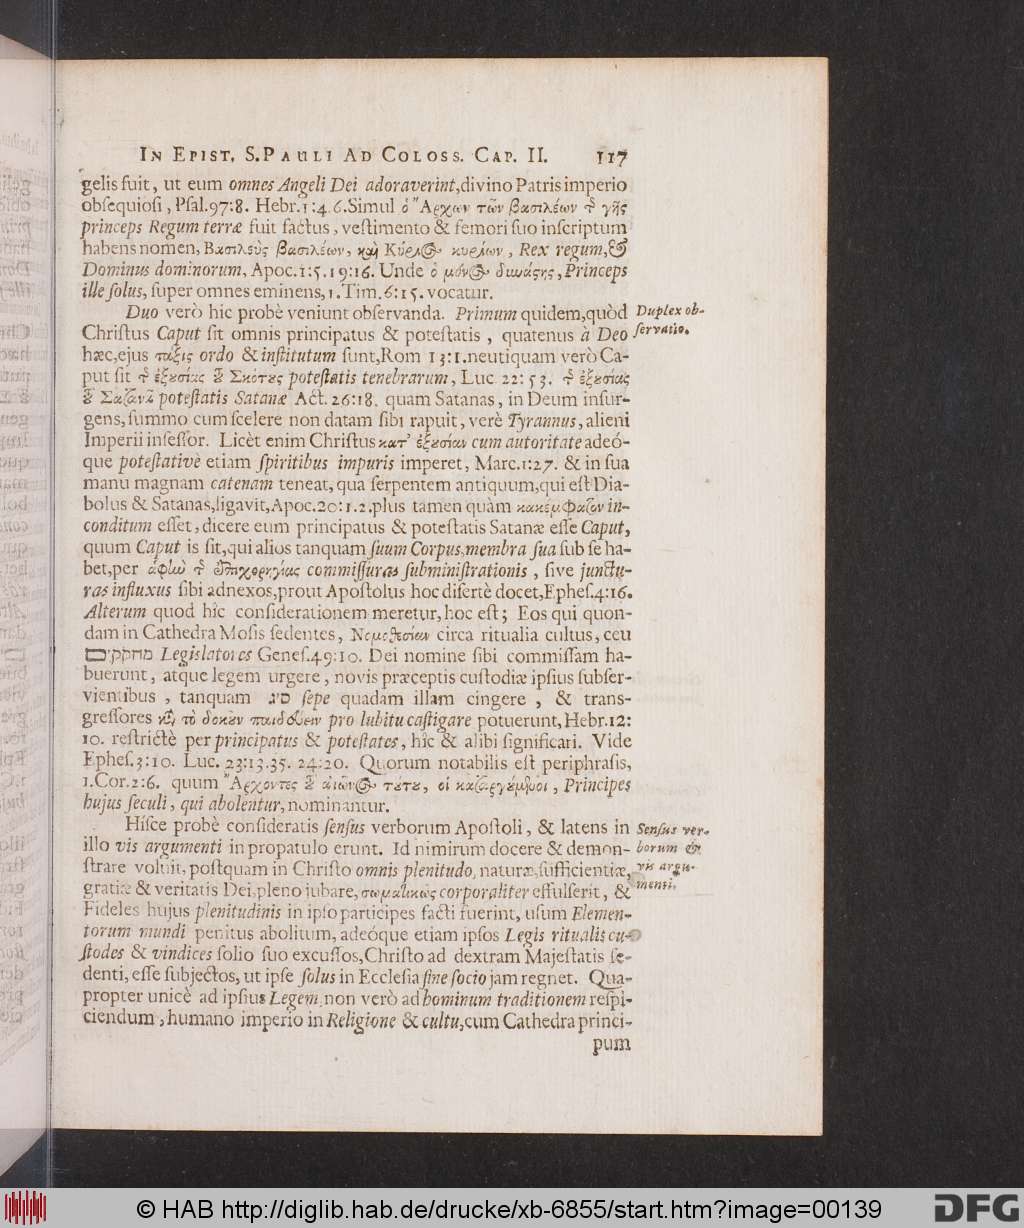 IN EPIST. S. PAULI AD COLOSS. CAP. II. 117
gelis fuit, ut eum omnes Angeli Dei adoraverint, divino Patris imperio
obſequioſi, Pſal. 97:8. Hebr. 1:4.6. Simul ὁ Ἄρχων τῶν βασιλέων τ͂ γῆς
princeps Regum terræ fuit factus, veſtimento & femori ſuo inſcriptum
habens nomen, Βασιλεὺς βασιλέων, καὶ Κύριος κυρίων, Rex regum, &
Dominus dominorum, Apoc. 1:5. 19:16. Unde ὁ μόνος δυνάστης, Princeps
ille ſolus, ſuper omnes eminens, 1. Tim. 6:15. vocatur.
Duo verò hic probè veniunt obſervanda. Primum quidem, quòd
Duplex ob-
ſervatio.
Chriſtus Caput ſit omnis principatus & poteſtatis, quatenus à Deo
hæc, ejus τάξις ordo & inſtitutum ſunt, Rom 13:1. neutiquam verò Ca-
put ſit τ͂ ἐξουσίας τοῦ Σκότους poteſtatis tenebrarum, Luc 22:53. τ͂ ἐξουσίας
τοῦ Σατανᾶ poteſtatis Satanæ Act. 26:18. quam Satanas, in Deum inſur-
gens, ſummo cum ſcelere non datam ſibi rapuit, verè Tyrannus, alieni
Imperii inſeſſor. Licèt enim Chriſtus κατ' ἐξουσίαν cum autoritate adeó-
que poteſtativè etiam ſpiritibus impuris imperet, Marc. 1:27. & in ſua
manu magnam catenam teneat, qua ſerpentem antiquum, qui eſt Dia-
bolus & Satanas, ligavit, Apoc. 20:1.2. plus tamen quàm κακέμφατον in-
conditum eſſet, dicere eum principatus & poteſtatis Satanæ eſſe Caput,
quum Caput is ſit, qui alios tanquam ſuum Corpus, membra ſua ſub ſe ha-
bet, per ἁφὴν τ͂ ἐπιχορηγίας commiſſuras ſubminiſtrationis, ſive junctu-
ras influxus ſibi adnexos, prout Apoſtolus hoc diſertè docet, Epheſ. 4:16.
Alterum quod hîc conſiderationem meretur, hoc eſt; Eos qui quon-
dam in Cathedra Moſis ſedentes, Νομοθεσίαν circa ritualia cultus, ceu
מחקקים Legislatores Geneſ. 49:10. Dei nomine ſibi commiſſam ha-
buerunt, atque legem urgere, novis præceptis cuſtodiæ ipſius ſubſer-
vientibus, tanquam סיג ſepe quadam illam cingere, & trans-
greſſores κατὰ τὸ δοκοῦν παιδεύειν pro lubitu caſtigare potuerunt, Hebr. 12:
10. reſtrictè per principatus & poteſtates, hîc & alibi ſignificari. Vide
Epheſ. 3:10. Luc. 23:13.35. 24:20. Quorum notabilis eſt periphraſis,
1. Cor. 2:6. quum Ἄρχοντες τοῦ αἰῶνος τούτου, οἱ καταργούμενοι, Principes
hujus ſeculi, qui abolentur, nominantur.
Hiſce probè conſideratis ſenſus verborum Apoſtoli, & latens in
Senſus ver-
borum &
vis argu-
menti.
illo vis argumenti in propatulo erunt. Id nimirum docere & demon-
ſtrare voluit, poſtquam in Chriſto omnis plenitudo, naturæ, ſufficientiæ,
gratiæ & veritatis Dei, pleno jubare, σωματικῶς corporaliter effulſerit, &
Fideles hujus plenitudinis in ipſo participes facti fuerint, uſum Elemen-
torum mundi penitus abolitum, adeóque etiam ipſos Legis ritualis cu-
ſtodes & vindices ſolio ſuo excuſſos, Chriſto ad dextram Majeſtatis ſe-
denti, eſſe ſubjectos, ut ipſe ſolus in Eccleſia ſine ſocio jam regnet. Qua-
propter unicè ad ipſius Legem, non verò ad hominum traditionem reſpi-
ciendum, humano imperio in Religione & cultu, cum Cathedra princi-
pum
© HAB http://diglib.hab.de/drucke/xb-6855/start.htm?image=00139
DFG